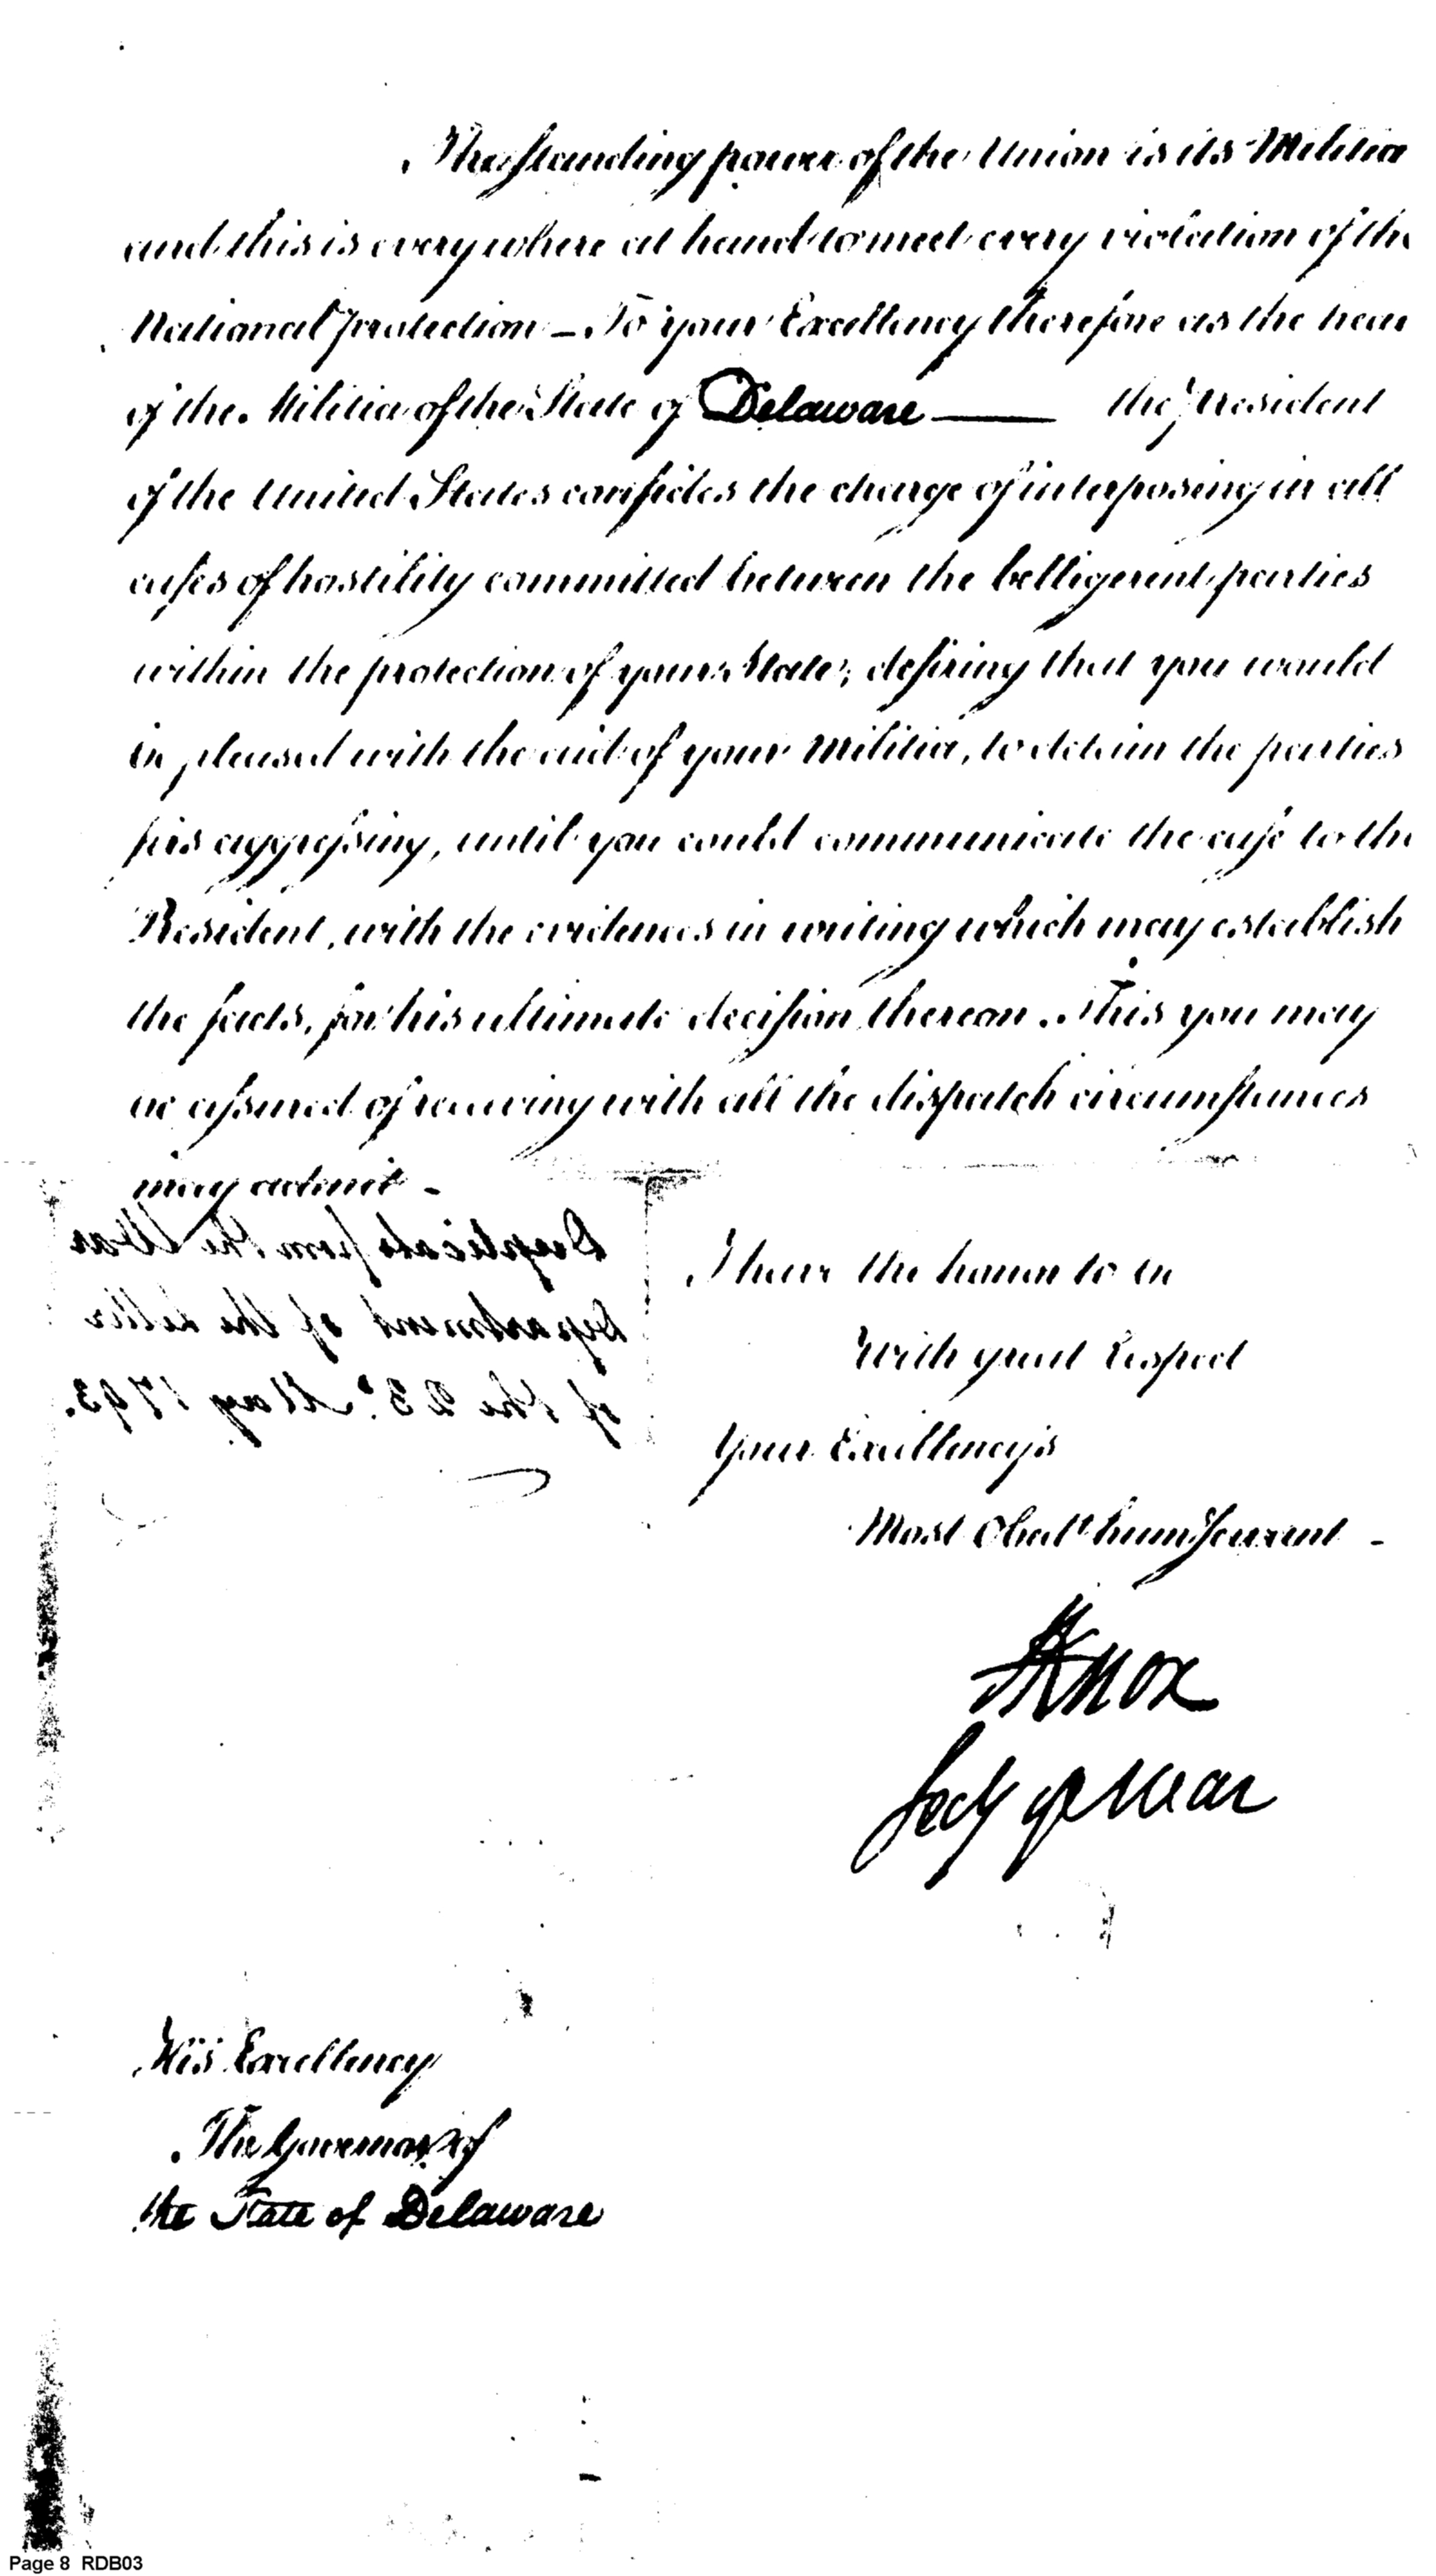 The standing power of the Union is its Militia
and this is every where at hand to meet every violation of the
National protection – To your Excellency therefore as the head
of the Militia of the State of Delaware —— the President
of the United States confides the charge of interposing in all
cases of hostility committed between the belligerent parties
within the protection of your State, desiring that you would
be pleased with the aid of your Militia, to detain the parties
first aggressing, until you could communicate the case to the
President, with the evidences in writing which may establish
the facts, for his ultimate decision thereon. This you may
be assured of receiving with all the dispatch circumstances
may admit –
Duplicate from the War
Department of the Letter
of the 23d. May 1793.
I have the honor to be
With great Respect
Your Excellency's
Most Obedt. hum. Servant –
HKnox
Secy of War
His Excellency
The Governor of
the State of Delaware
Page 8 RDB03